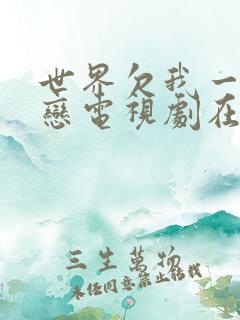 世界欠我一
戀電視劇在
三生萬物
未經同意禁止轉載